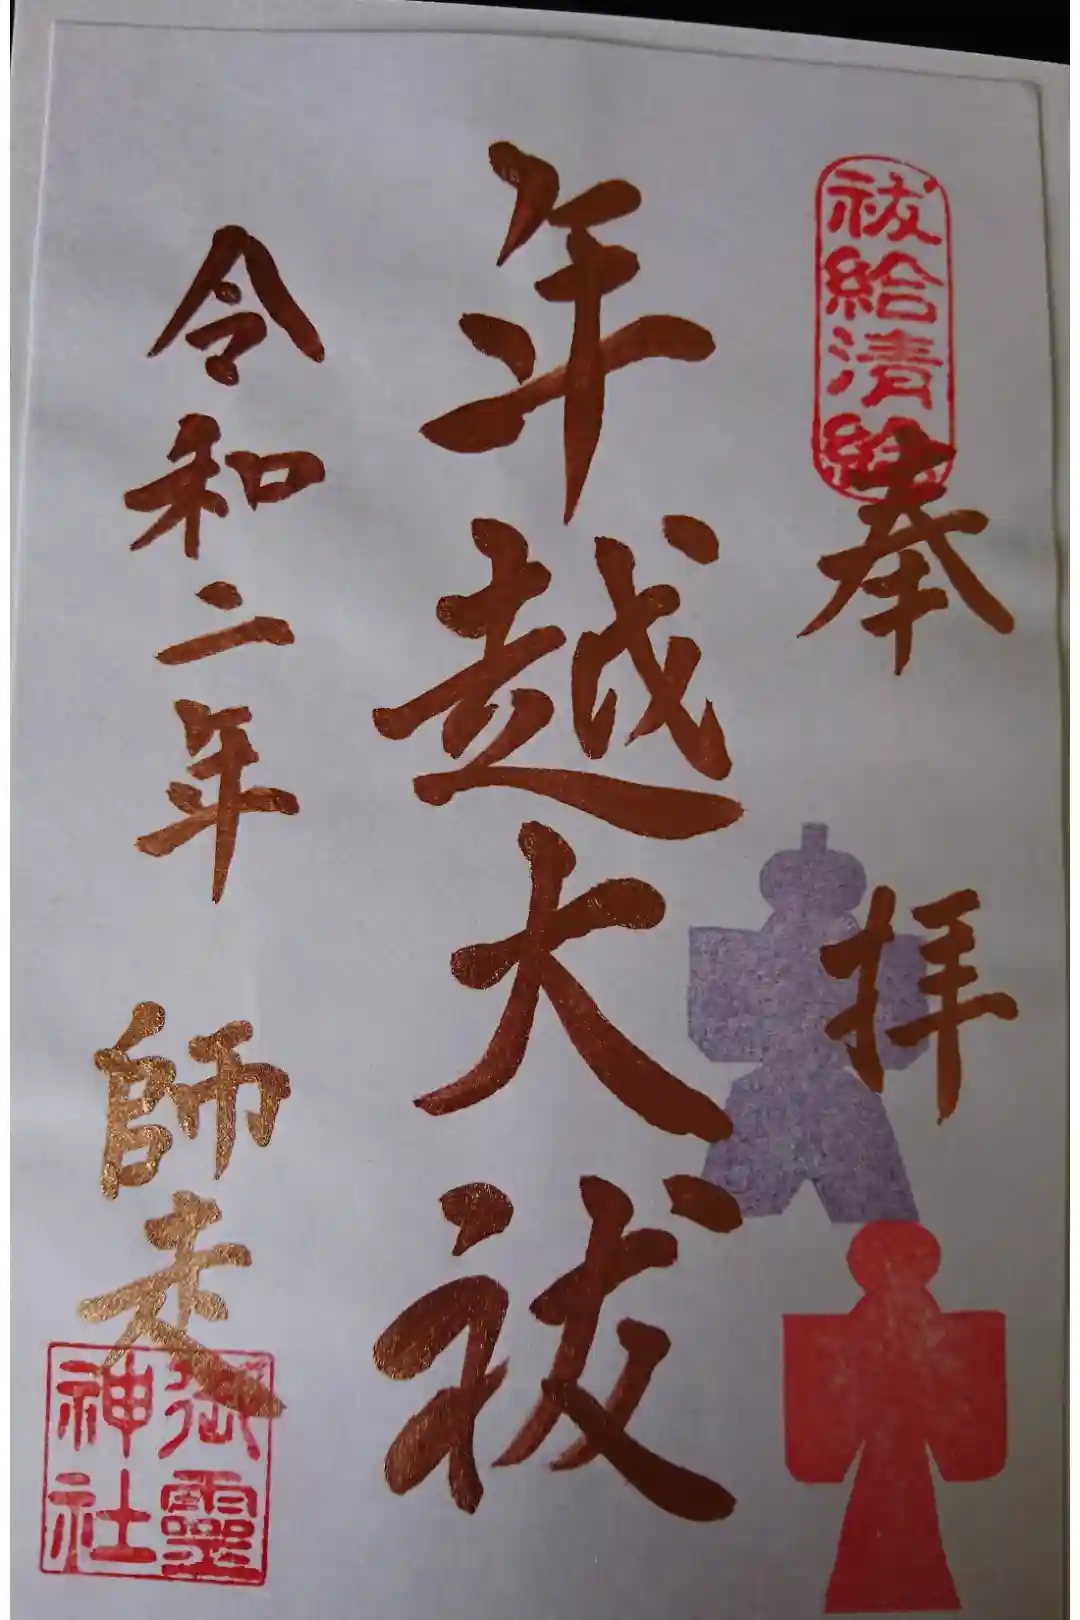 祓給清給
奉拝
年越大祓
令和二年 師走
御靈
神社